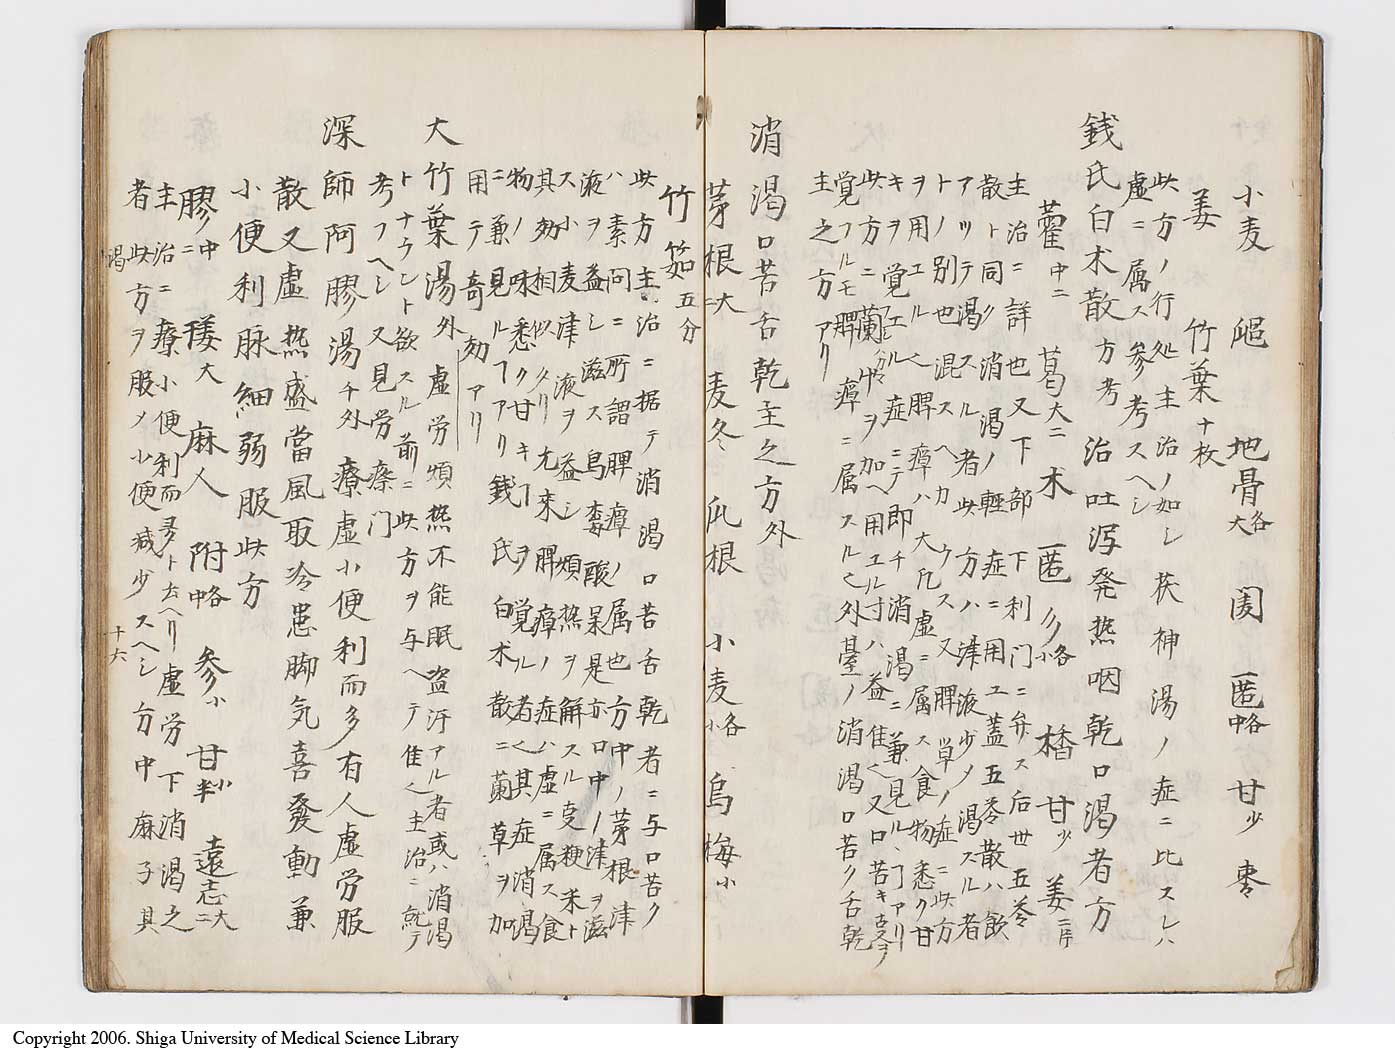 小麦 地骨各大 甘少 棗
姜 竹葉十枚
此方ノ行処主治ノ如シ茯神湯ノ症ニ比スレハ
虚ニ属ス参考スヘシ
銭氏白术散方考 治吐瀉発热咽乾口渇者方
藿中二 葛大二 术 小各 甘少 姜二片
主治ニ詳也又下部下利門ニ弁ス后世五苓
散ト同ク消渇ノ軽症ニ用ユ蓋五苓散ハ飲
アツテ渇スル者此方ハ津液少ノ渇スル者
トノ別也混スヘカラス又脾草ノ症ニ此方
ヲ用エル 脾瘴ハ大凡虚ニ属ス食物悉ク甘
キヲ覚エル症ニテ即チ消渇ニ兼見ル門アリ
此方ニ蘭草ヲ加ヘ用エル寸ハ益ニ佳 又口苦キヲ
覚フルモ脾瘴ニ属スル 外臺ノ消渇口苦ク舌乾
主之方アリ
消渇口苦舌乾主之方外
茅根大二 麦冬 瓜根 小麦各小 烏梅小
竹筎五分
此方主治ニ据テ消渇口苦舌乾者ニ与口苦ク
ハ素问ニ所謂脾瘴ノ属也方中ノ茅根津
液ヲ益シ滋ス烏梅酸 是亦口中ノ津ヲ滋
ス小麦津液ヲ益シ煩热ヲ解スル 粳米ト
其効相似タリ尤来脾瘴ノ症ハ虚ニ属ス食
物ノ味悉ク甘キヿヲ覚ル者 其症消渇
ニ兼見ルヿアリ銭氏白术散ニ蘭草ヲ加
用テ奇効アリ
大竹葉湯外 虚労煩热不能眠盗汗アル者或ハ消渇
トナラント欲スル前ニ此方ヲ与ヘテ佳 主治ニ就テ
考フヘシ又見労瘵门
深師阿膠湯千外 療虚小便利而多有人虚労服
散又虚热盛當風取冷患脚気喜發動兼
小便利脉細弱服此方
膠中二 大 麻人 附各中 参小 甘小 遠志大二
主治ニ療小便利而多ト云ヘリ虚労下消渇之
者此方ヲ服メ小便减少スヘシ方中麻子其
渇
十六